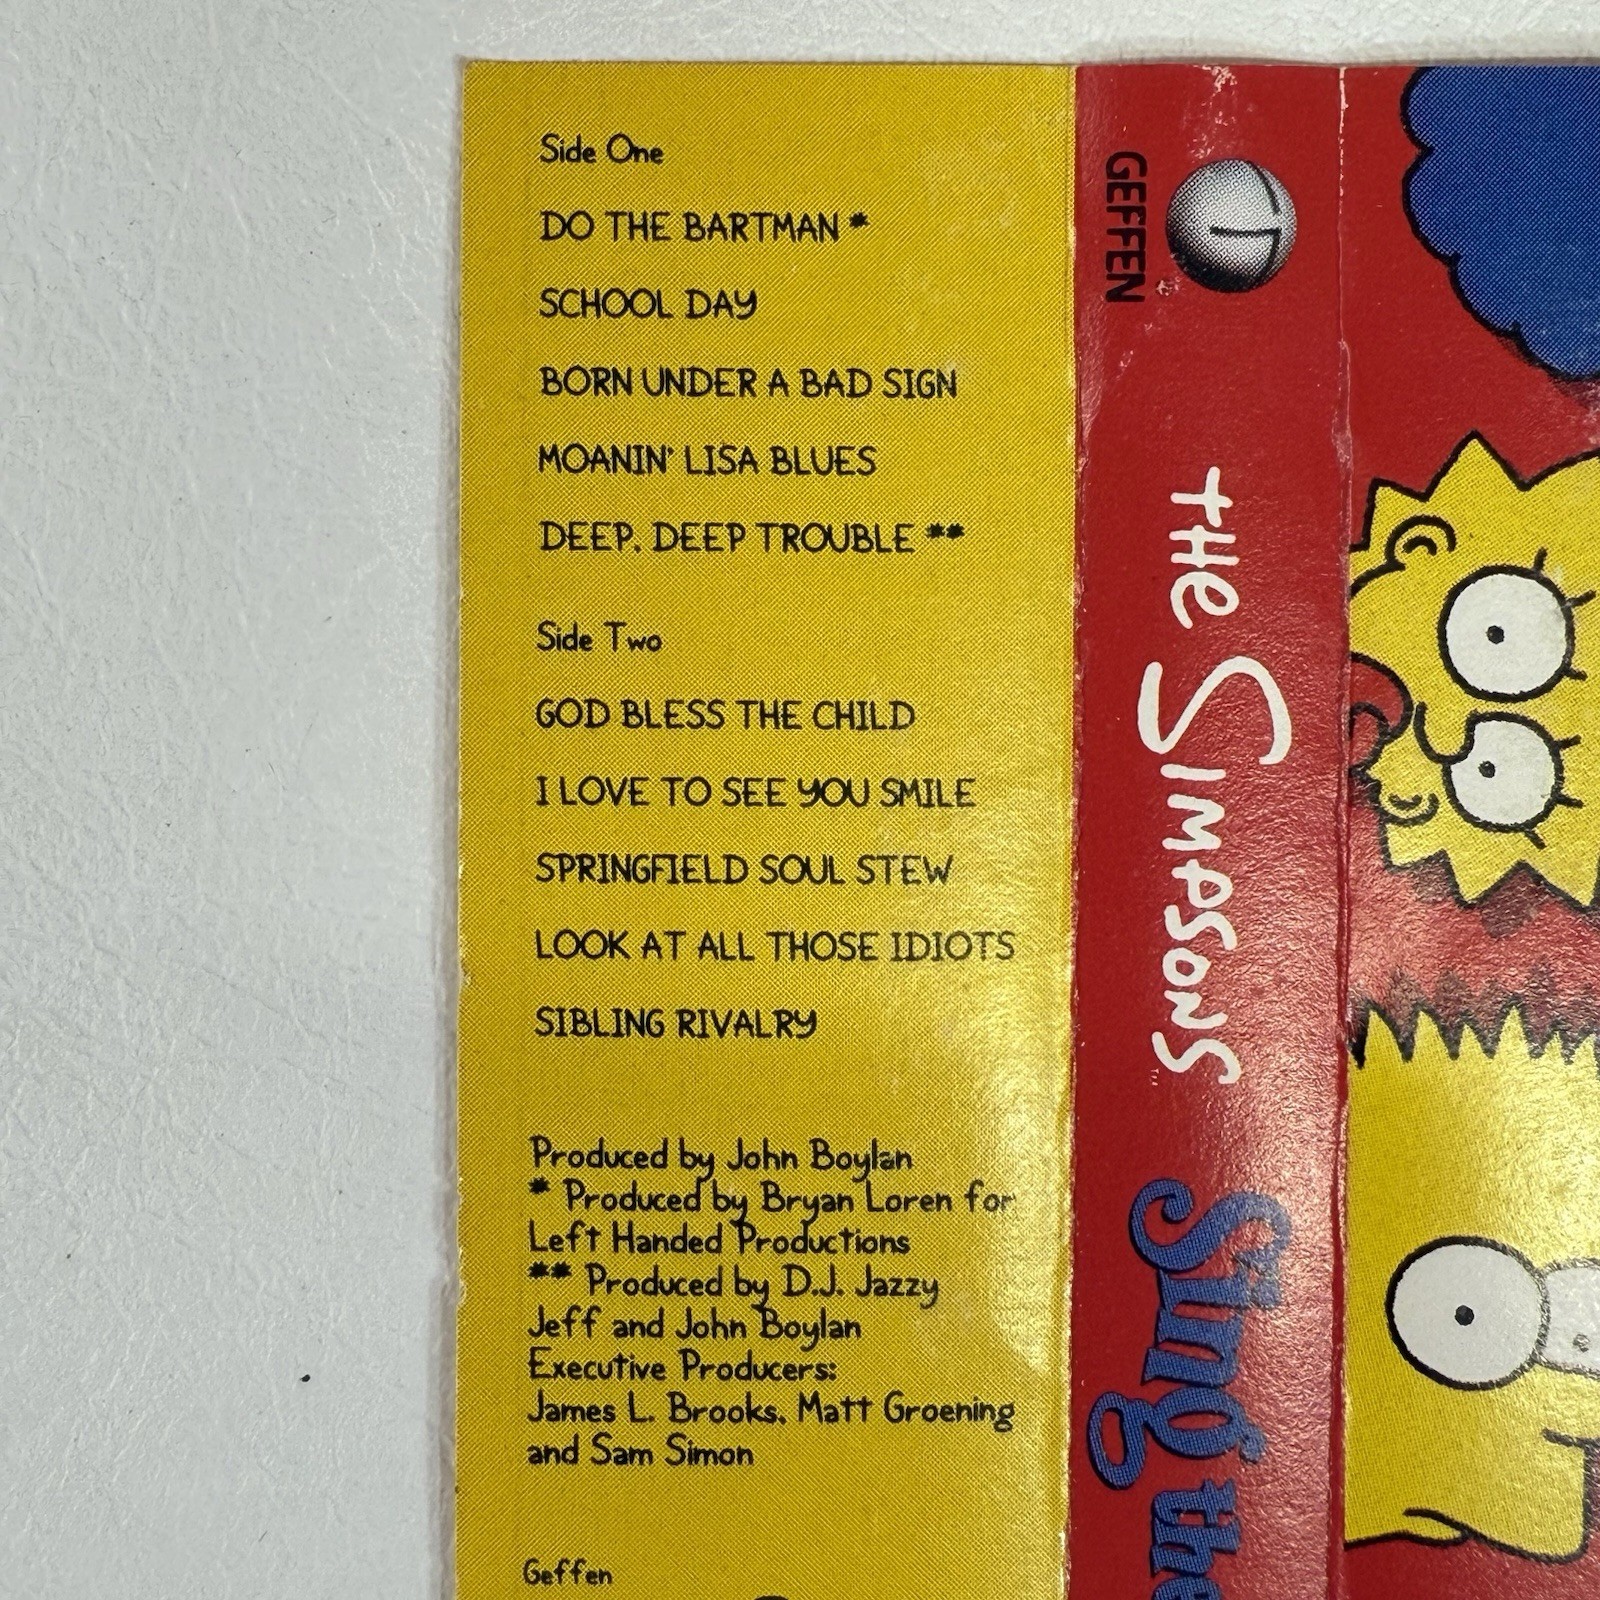 Side One
DO THE BARTMAN *
SCHOOL DAY
BORN UNDER A BAD SIGN
MOANIN' LISA BLUES
DEEP, DEEP TROUBLE **
Side Two
GOD BLESS THE CHILD
I LOVE TO SEE YOU SMILE
SPRINGFIELD SOUL STEW
LOOK AT ALL THOSE IDIOTS
SIBLING RIVALRY
Produced by John Boylan
* Produced by Bryan Loren for
Left Handed Productions
** Produced by D.J. Jazzy
Jeff and John Boylan
Executive Producers:
James L. Brooks, Matt Groening
and Sam Simon
Geffen
GEFFEN
THE SIMPSONS™ Sing the